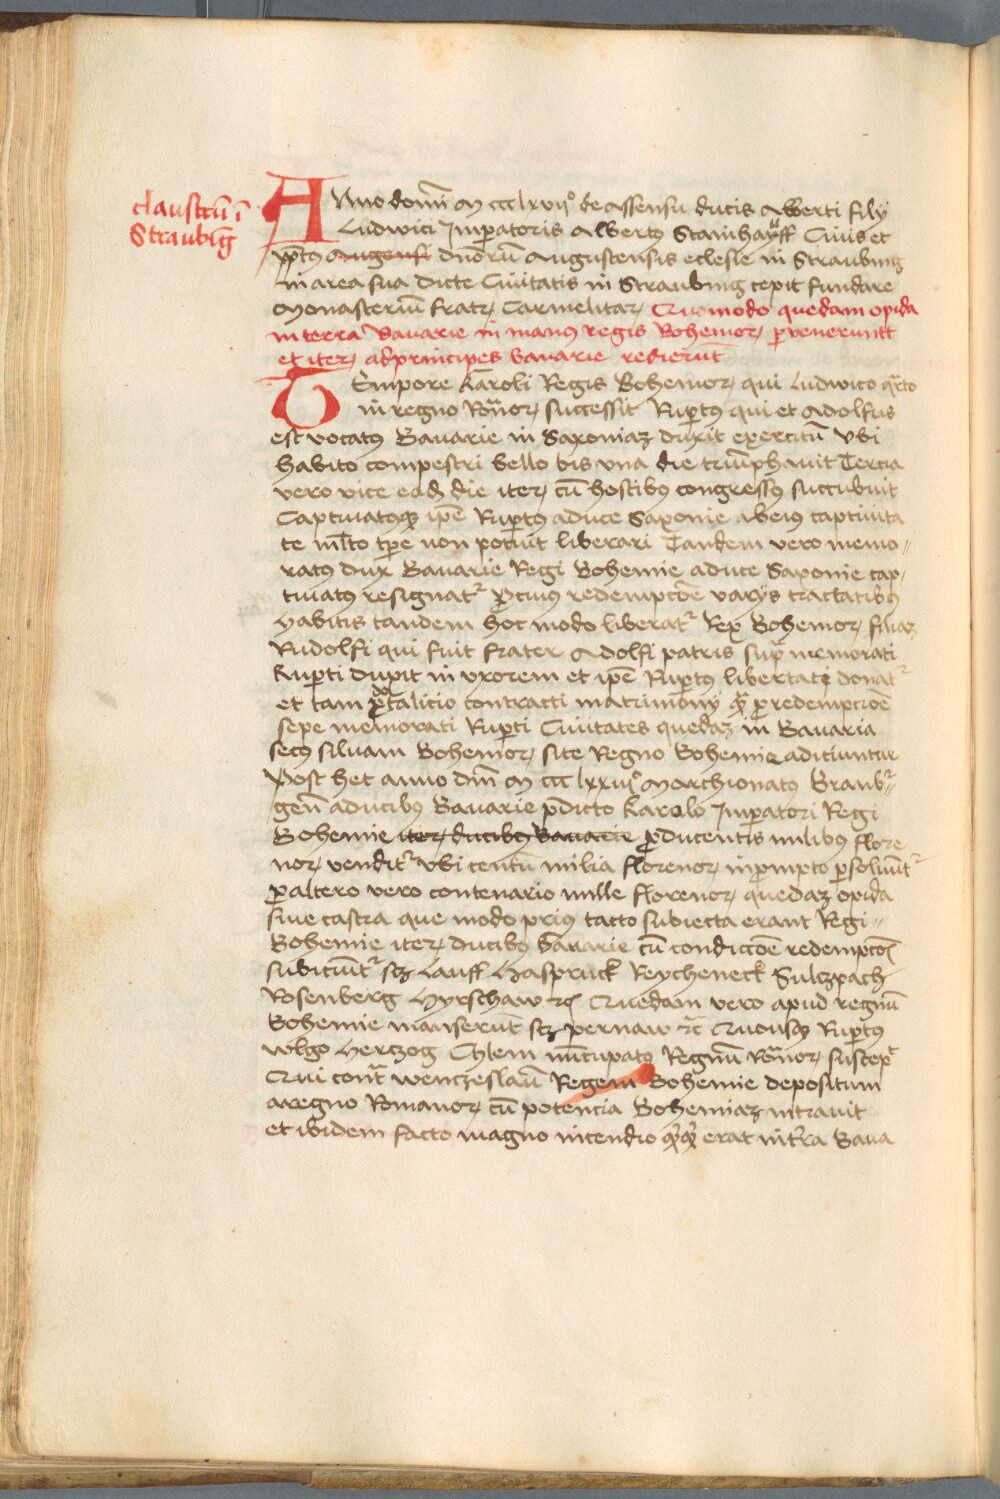 claustrū ī
Straubīg
Anno domī M ccc lxvij° de assensu ducis Alberti filij
Ludwici Imꝑatoris Albertꝰ Stainhauff Ciuis et
ppͭus Augensi dnorū Augustensis eclesie in Straubing
in area sua dicte Ciuitatis in Straubing cepit fundare
Monasteriū fratrꝝ Carmelitaꝝ Quomodo quedam opida
in terra Bauarie in manꝰ regis Bohemoꝝ ꝑuenerunt
et iteꝝ ad principes bauarie redierūt
Tempore Karoli Regis Bohemoꝝ qui Ludwico qͣrto
in regno Romͣnoꝝ successit Ruꝑtꝰ qui et Adolfus
est vocatꝰ Bauarie in Saxoniaʒ duxit exercitū Vbi
habito compestri bello bis vna die triūphauit Tercia
vero vice eadʒ die iteꝝ cū hostibꝰ congressꝰ succubuit
Captiuatusqʒ ipē Ruꝑtꝰ a duce Saxonie a beiꝰ captiuita
te ml̄to tp̄e non potuit liberari Tandem vero memo〃
ratꝰ dux Bauarie Regi Bohemie a duce Saxonie cap,
tiuatꝰ resignatᷣ ꝓ cuiꝰ redempcōe varijs tractatibꝰ
habitis tandem hoc modo liberatᷣ Rex Bohemoꝝ filiaʒ
Rudolfi qui fuit frater Adolfi patris supͣ memorati
Ruꝑti duxit in vxorem et ipē Ruꝑtꝰ libertati donatᷣ
et tam ꝓ dotalicio contracti matrimonij qͣ ꝓ redempcōe
sepe memorati Ruꝑti Ciuitates quedaʒ in Bauaria
secꝰ siluam Bohemoꝝ site Regno Bohemie adiciuntur
Post hec anno dm̄ M ccc lxxiij° Marchionatꝰ Branbᷣ〃
geñ a ducibꝰ Bauarie p̄dicto Karolo Imꝑatori Regi
Bohemie iteꝝ ducibꝰ Bauarie ꝓ ducentis milibꝰ flore
noꝝ venditᷣ Vbi centū milia florenoꝝ in ꝓmpto ꝑsoluūtᷣ
ꝓ altero vero centenario mille florenoꝝ quedaʒ opida
siue castra que modo priꝰ tacto subiecta erant Regi〃
Bohemie iteꝝ ducibꝰ bauarie cū condiccōe redempcōs
subiciūtᷣ scʒ Lauff Haspruck Reycheneck Sultzpach
Rosenberg Hyrschaw ⁊c Quedam vero apud regnū
Bohemie manserūt scʒ pernaw ⁊c Quousqʒ Ruꝑtꝰ
wlgo Hertzog Chlem nūcupatꝰ Regnū Romͣnoꝝ suscepᷣ
Qui contͣ Wenczeslaū Regem Bohemie depositum
a regno Romanoꝝ cū potencia Bohemiaʒ intrauit
et ibidem facto magno incendio qͥcqͥd erat intͣra Baua